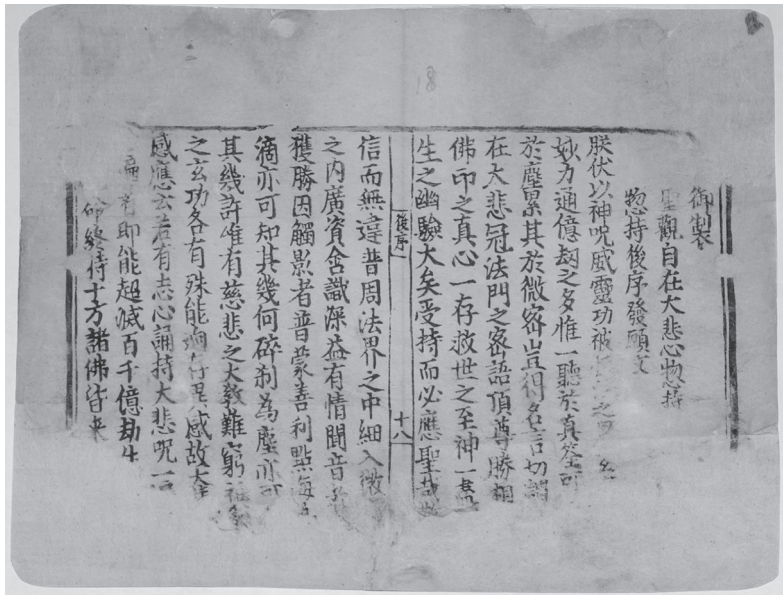 御製
聖觀自在大悲心惣持
惣持後序發願文
朕伏以神呪威靈功被
妙力通億劫之多惟一聽於真筌
於塵累其於微密豈得名言切謂
在大悲冠法門之密語頂尊勝相
佛印之真心一存救世之至神一
生之幽驗大矣受持而必應聖哉
後序
十八
信而無違普周法界之中細入微
之内廣資含識深益有情聞音
獲勝因觸影者普蒙善利點海
滴亦可知其幾何碎刹為塵亦可
其幾許唯有慈悲之大教難窮福
之玄功各有殊能迥存異感故大
感應云若有志心誦持大悲呪一
遍者即能超滅百千億劫生
命終時十方諸佛皆来